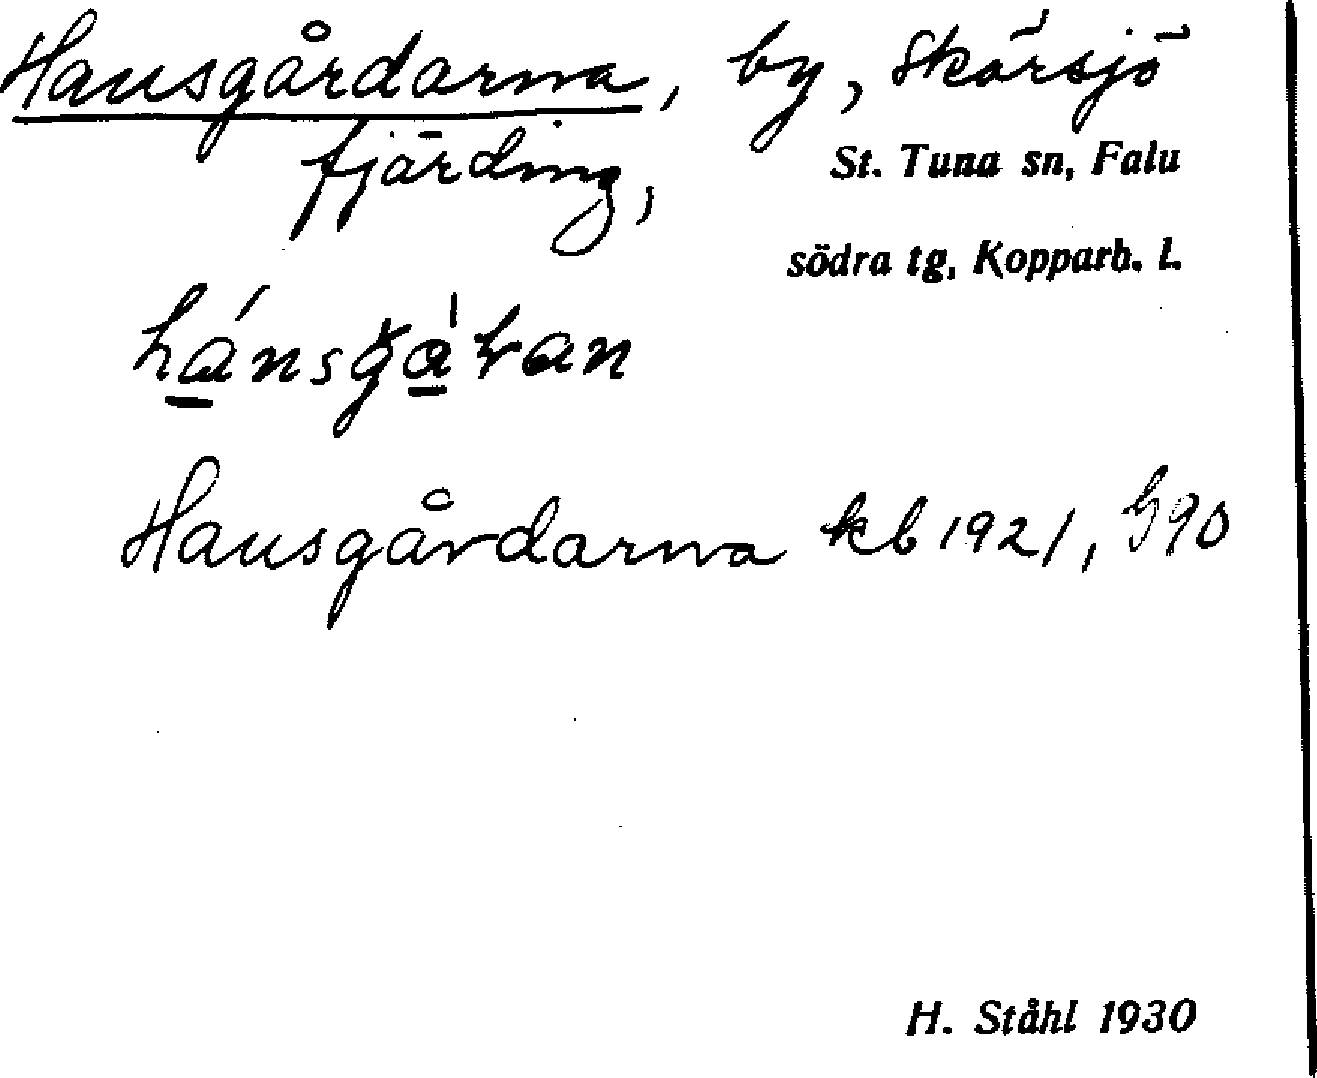 Hansgårdarna, by, Skärsjö
fjärding,
St. Tuna sn, Falu
södra tg, Kopparb. l.
Hansgårdarna kb 1921,
H. Ståhl 1930